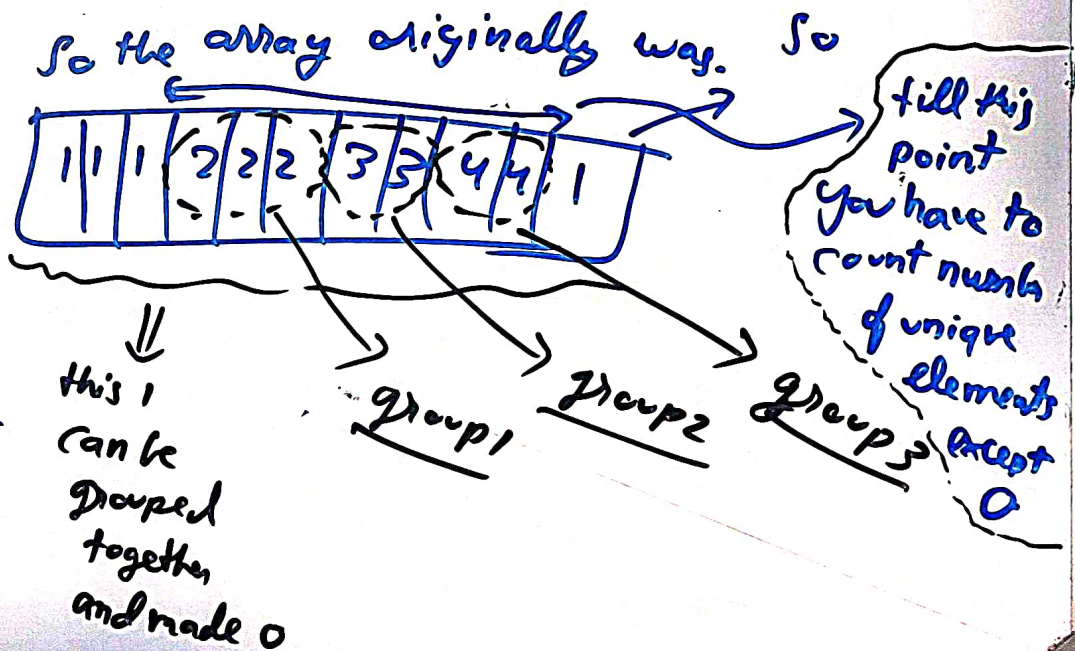 So the array originally was. So
1 1 1 2 2 2 3 3 4 4 1
till this
point
you have to
count number
of unique
elements
except
0
this 1
can be
grouped
together
and made 0
group1
group2
group3